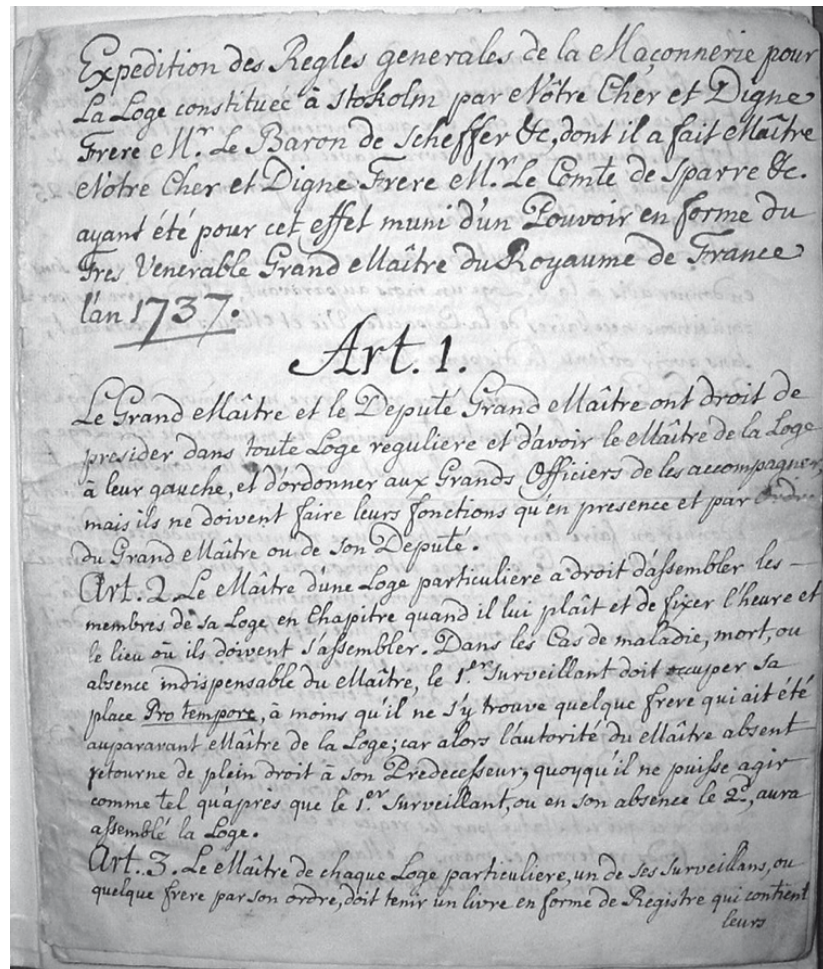 Expedition des Regles generales de la Maçonnerie pour
La Loge constituée à Stokolm par Nôtre Cher et Digne
Frere Mr. Le Baron de Scheffer &c, dont il a fait Maître
Nôtre Cher et Digne Frere Mr. Le Comte de Sparre &c.
ayant été pour cet effet muni d'un Pouvoir en forme du
Tres Venerable Grand Maître du Royaume de France
l'an 1737.
Art. 1.
Le Grand Maître et le Deputé Grand Maître ont droit de
presider dans toute Loge reguliere et d'avoir le Maître de la Loge
à leur gauche, et d'ordonner aux Grands Officiers de les accompagner,
mais ils ne doivent faire leurs fonctions qu'en presence et par Ordre
du Grand Maître ou de son Deputé.
Art. 2. Le Maître d'une Loge particuliere a droit d'assembler les –
membres de sa Loge en Chapitre quand il lui plaît et de fixer l'heure et
le lieu où ils doivent s'assembler. Dans les Cas de maladie, mort, ou
absence indispensable du Maître, le 1.er Surveillant doit occuper sa
place Pro tempore, à moins qu'il ne s'y trouve quelque frere qui ait été
auparavant Maître de la Loge; car alors l'autorité du Maître absent
retourne de plein droit à son Predecesseur, quoyqu'il ne puisse agir
comme tel qu'après que le 1.er Surveillant, ou en son absence le 2d, aura
assemblé la Loge.
Art. 3. Le Maître de chaque Loge particuliere, un de ses Surveillans, ou
quelque frere par son ordre, doit tenir un livre en forme de Registre qui contient
leurs